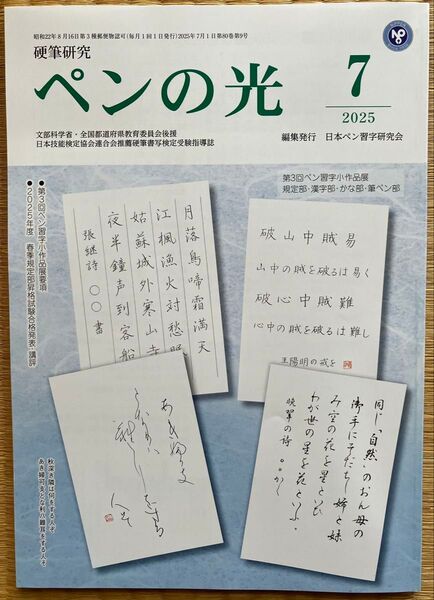 昭和22年8月16日第3種郵便物認可(毎月1回1日発行)2025年7月1日第80巻第9号
硬筆研究
ペンの光
7
2025
文部科学省・全国都道府県教育委員会後援
日本技能検定協会連合会推薦硬筆書写検定受験指導誌
編集発行 日本ペン習字研究会
第3回ペン習字小作品展
規定部・漢字部・かな部・筆ペン部
●第3回ペン習字小作品展要項
●2025年度 春季規定部昇格試験合格発表・講評
月落烏啼霜満天
江楓漁火対愁眠
姑蘇城外寒山寺
夜半鐘声到客船
張継詩 〇〇書
破山中賊易
山中の賊を破るは易く
破心中賊難
心中の賊を破るは難し
王陽明の戒を
同じ「自然」のおん母の
御手にそだちし姉と妹
み空の花を星といひ
わが世の星を花といふ
晩翠の詩
秋深き隣は何をする人ぞ